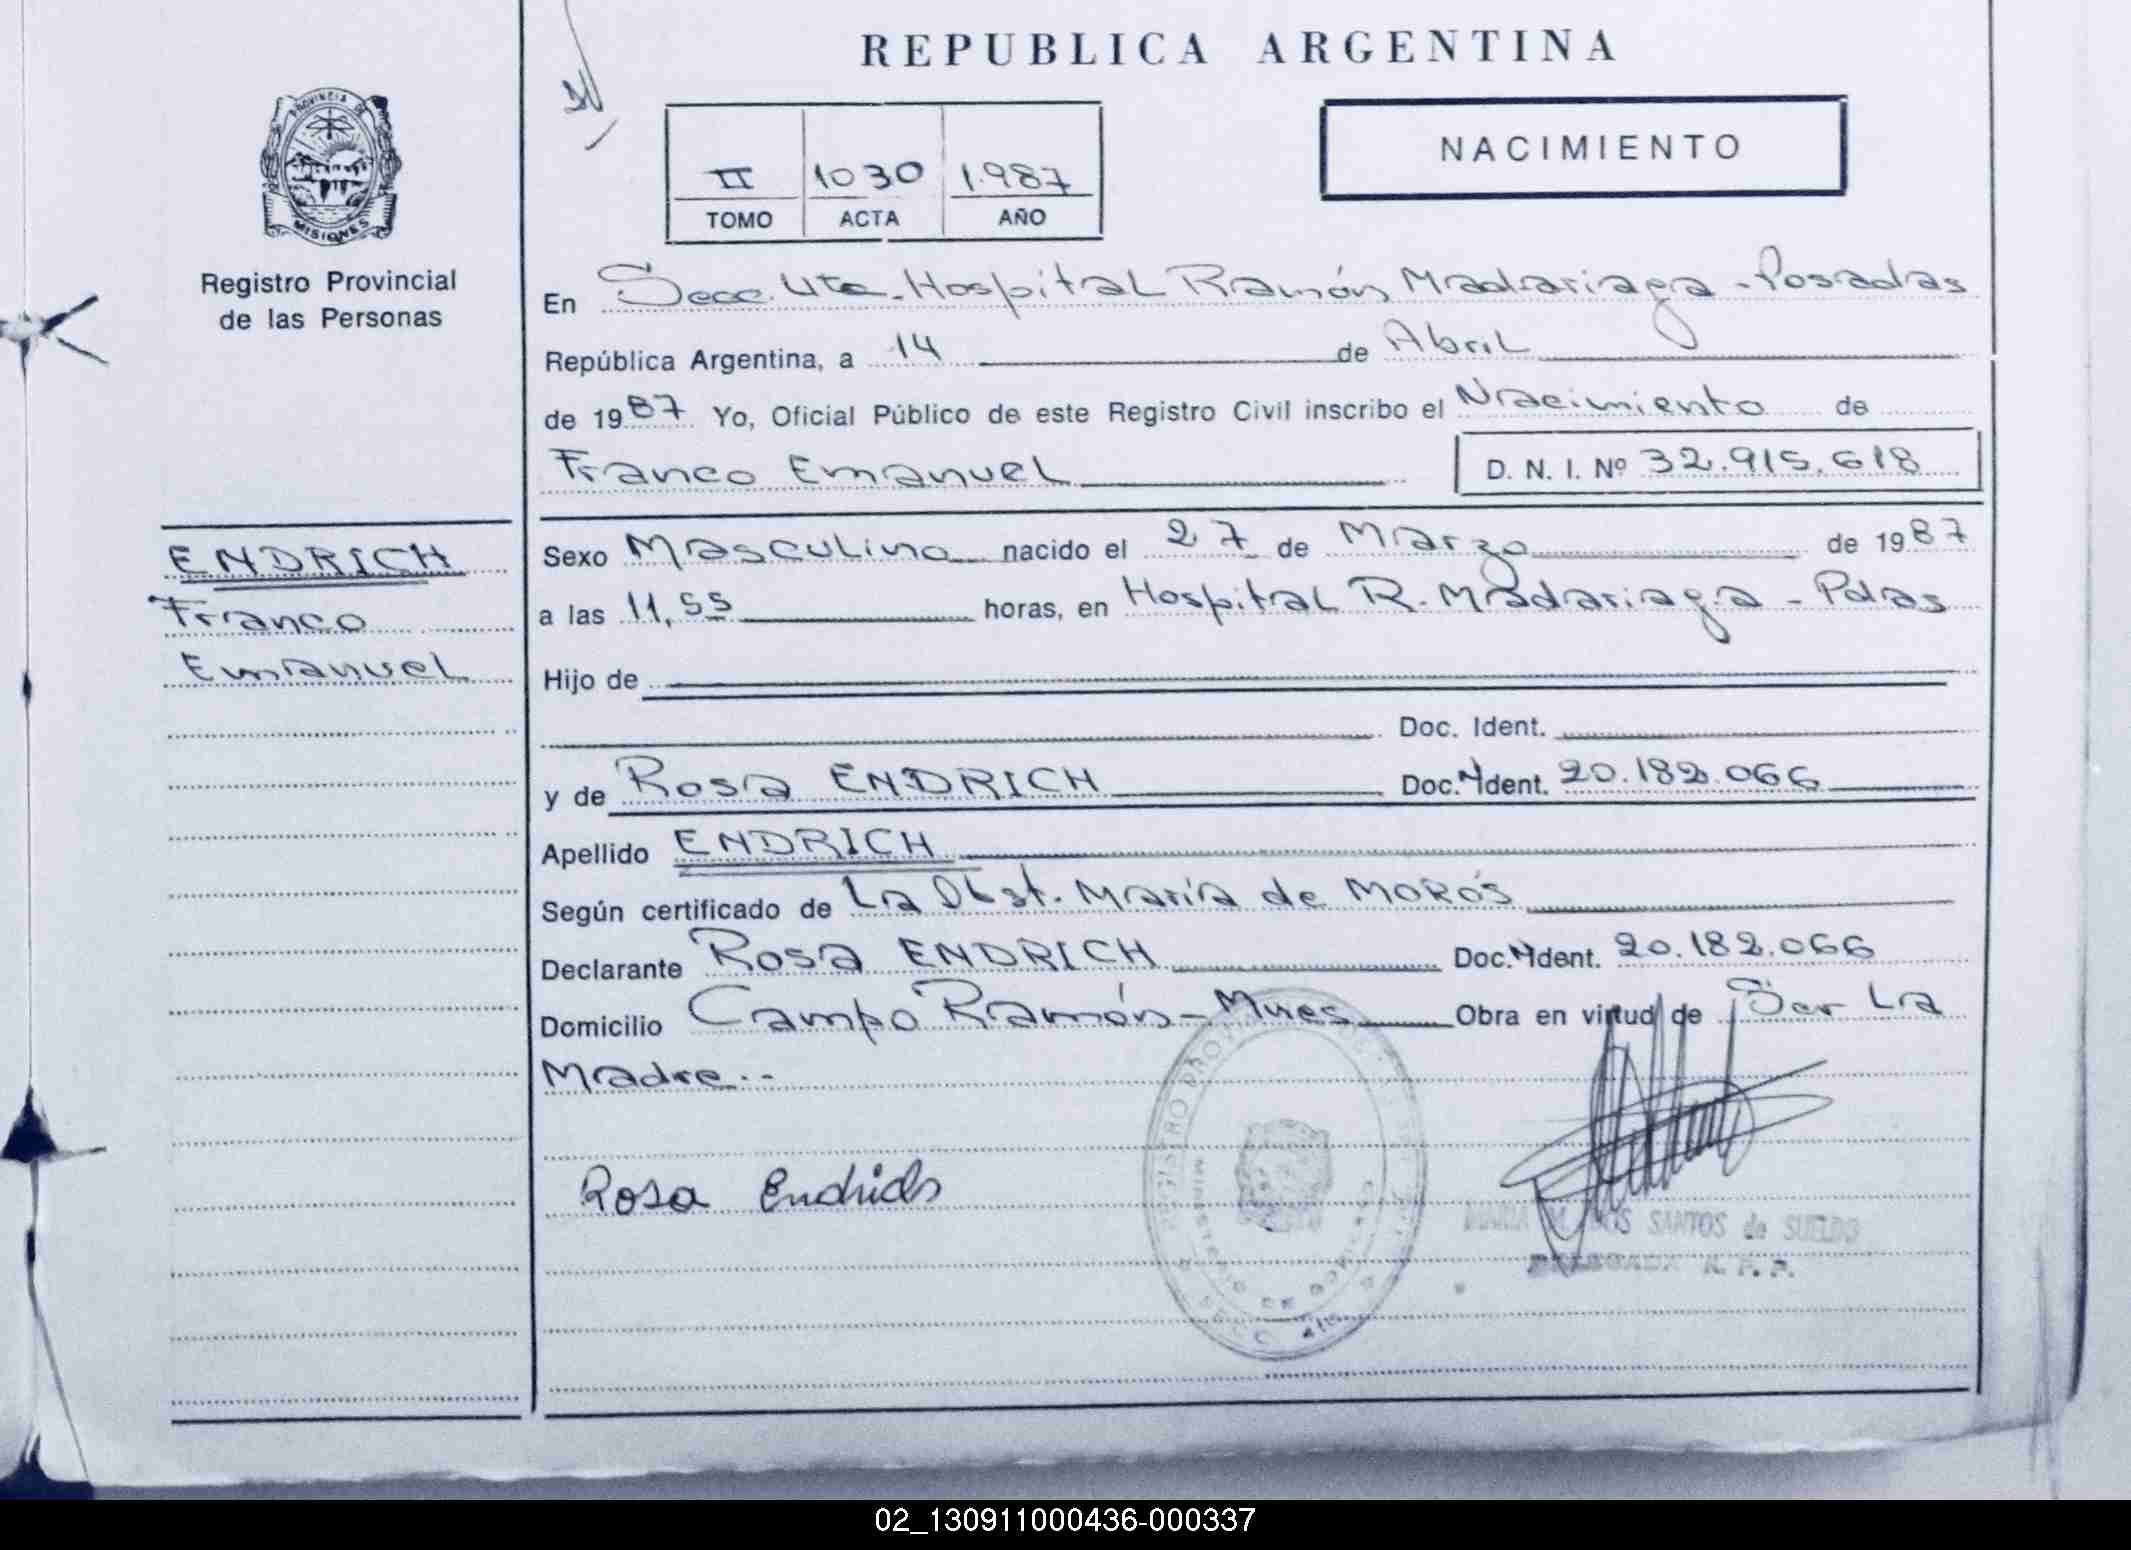 REPUBLICA ARGENTINA
PROVINCIA DE
MISIONES
Registro Provincial
de las Personas
II 1030 1.987
TOMO ACTA AÑO
NACIMIENTO
En Secc. 4ta. Hospital Ramón Madariaga - Posadas
República Argentina, a 14 de Abril
de 1987 Yo, Oficial Público de este Registro Civil inscribo el Nacimiento de
Franco Emanuel D. N. I. Nº 32.915.618
ENDRICH
Franco
Emanuel
Sexo Masculino nacido el 27 de Marzo de 1987
a las 11,55 horas, en Hospital R. Madariaga - Pdas
Hijo de
Doc. Ident.
y de Rosa ENDRICH Doc. Ident. 20.182.066
Apellido ENDRICH
Según certificado de La Obst. María de MORÓS
Declarante Rosa ENDRICH Doc. Ident. 20.182.066
Domicilio Campo Ramón - Mnes Obra en virtud de Ser La
Madre.-
Rosa Endrich
SANTOS de SUELDO
DELEGADA R. P. P.
02_130911000436-000337